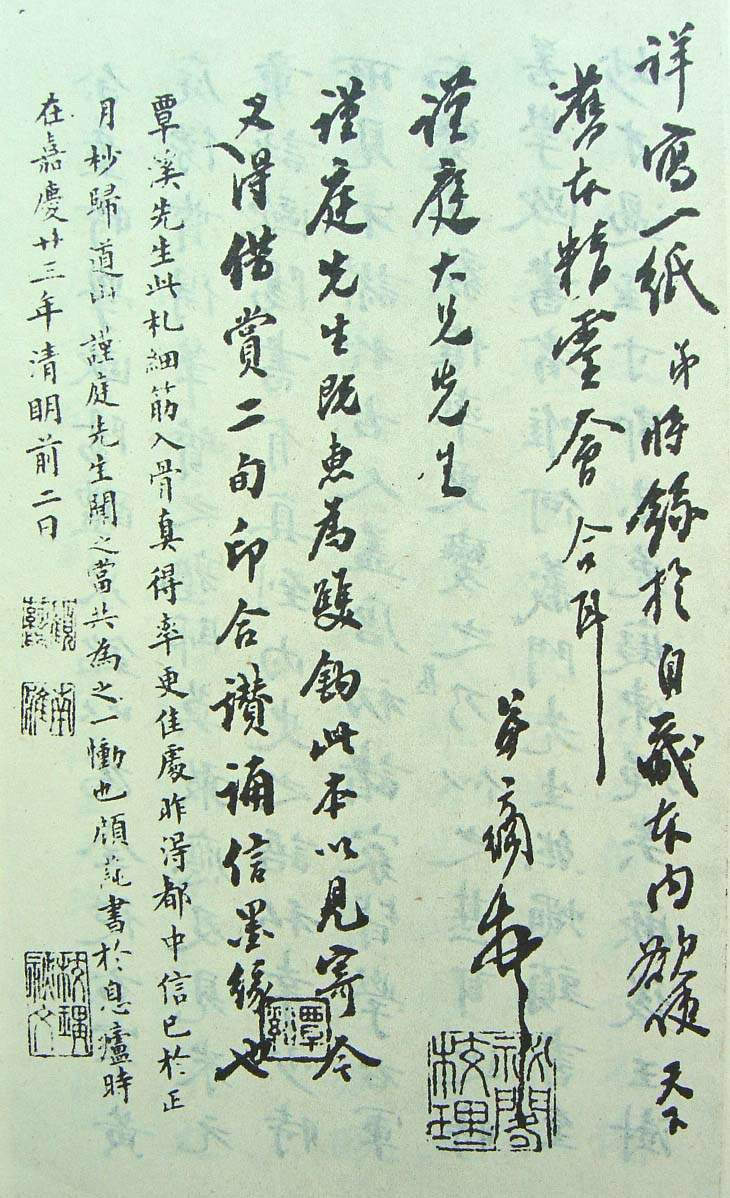 詳寫一紙弟將錄於自藏本內欲使天下
舊本精靈會合耳
謹庭大兄先生 弟方綱
謹庭先生既惠為雙鉤此本以見寄今
又得借賞二旬印合讚誦信墨緣也
覃溪先生此札細筋入骨真得率更佳處昨得都中信已於正
月杪歸道山謹庭先生聞之當共為之一慟也顧蒓書於息廬時
在嘉慶廿三年清明前二日